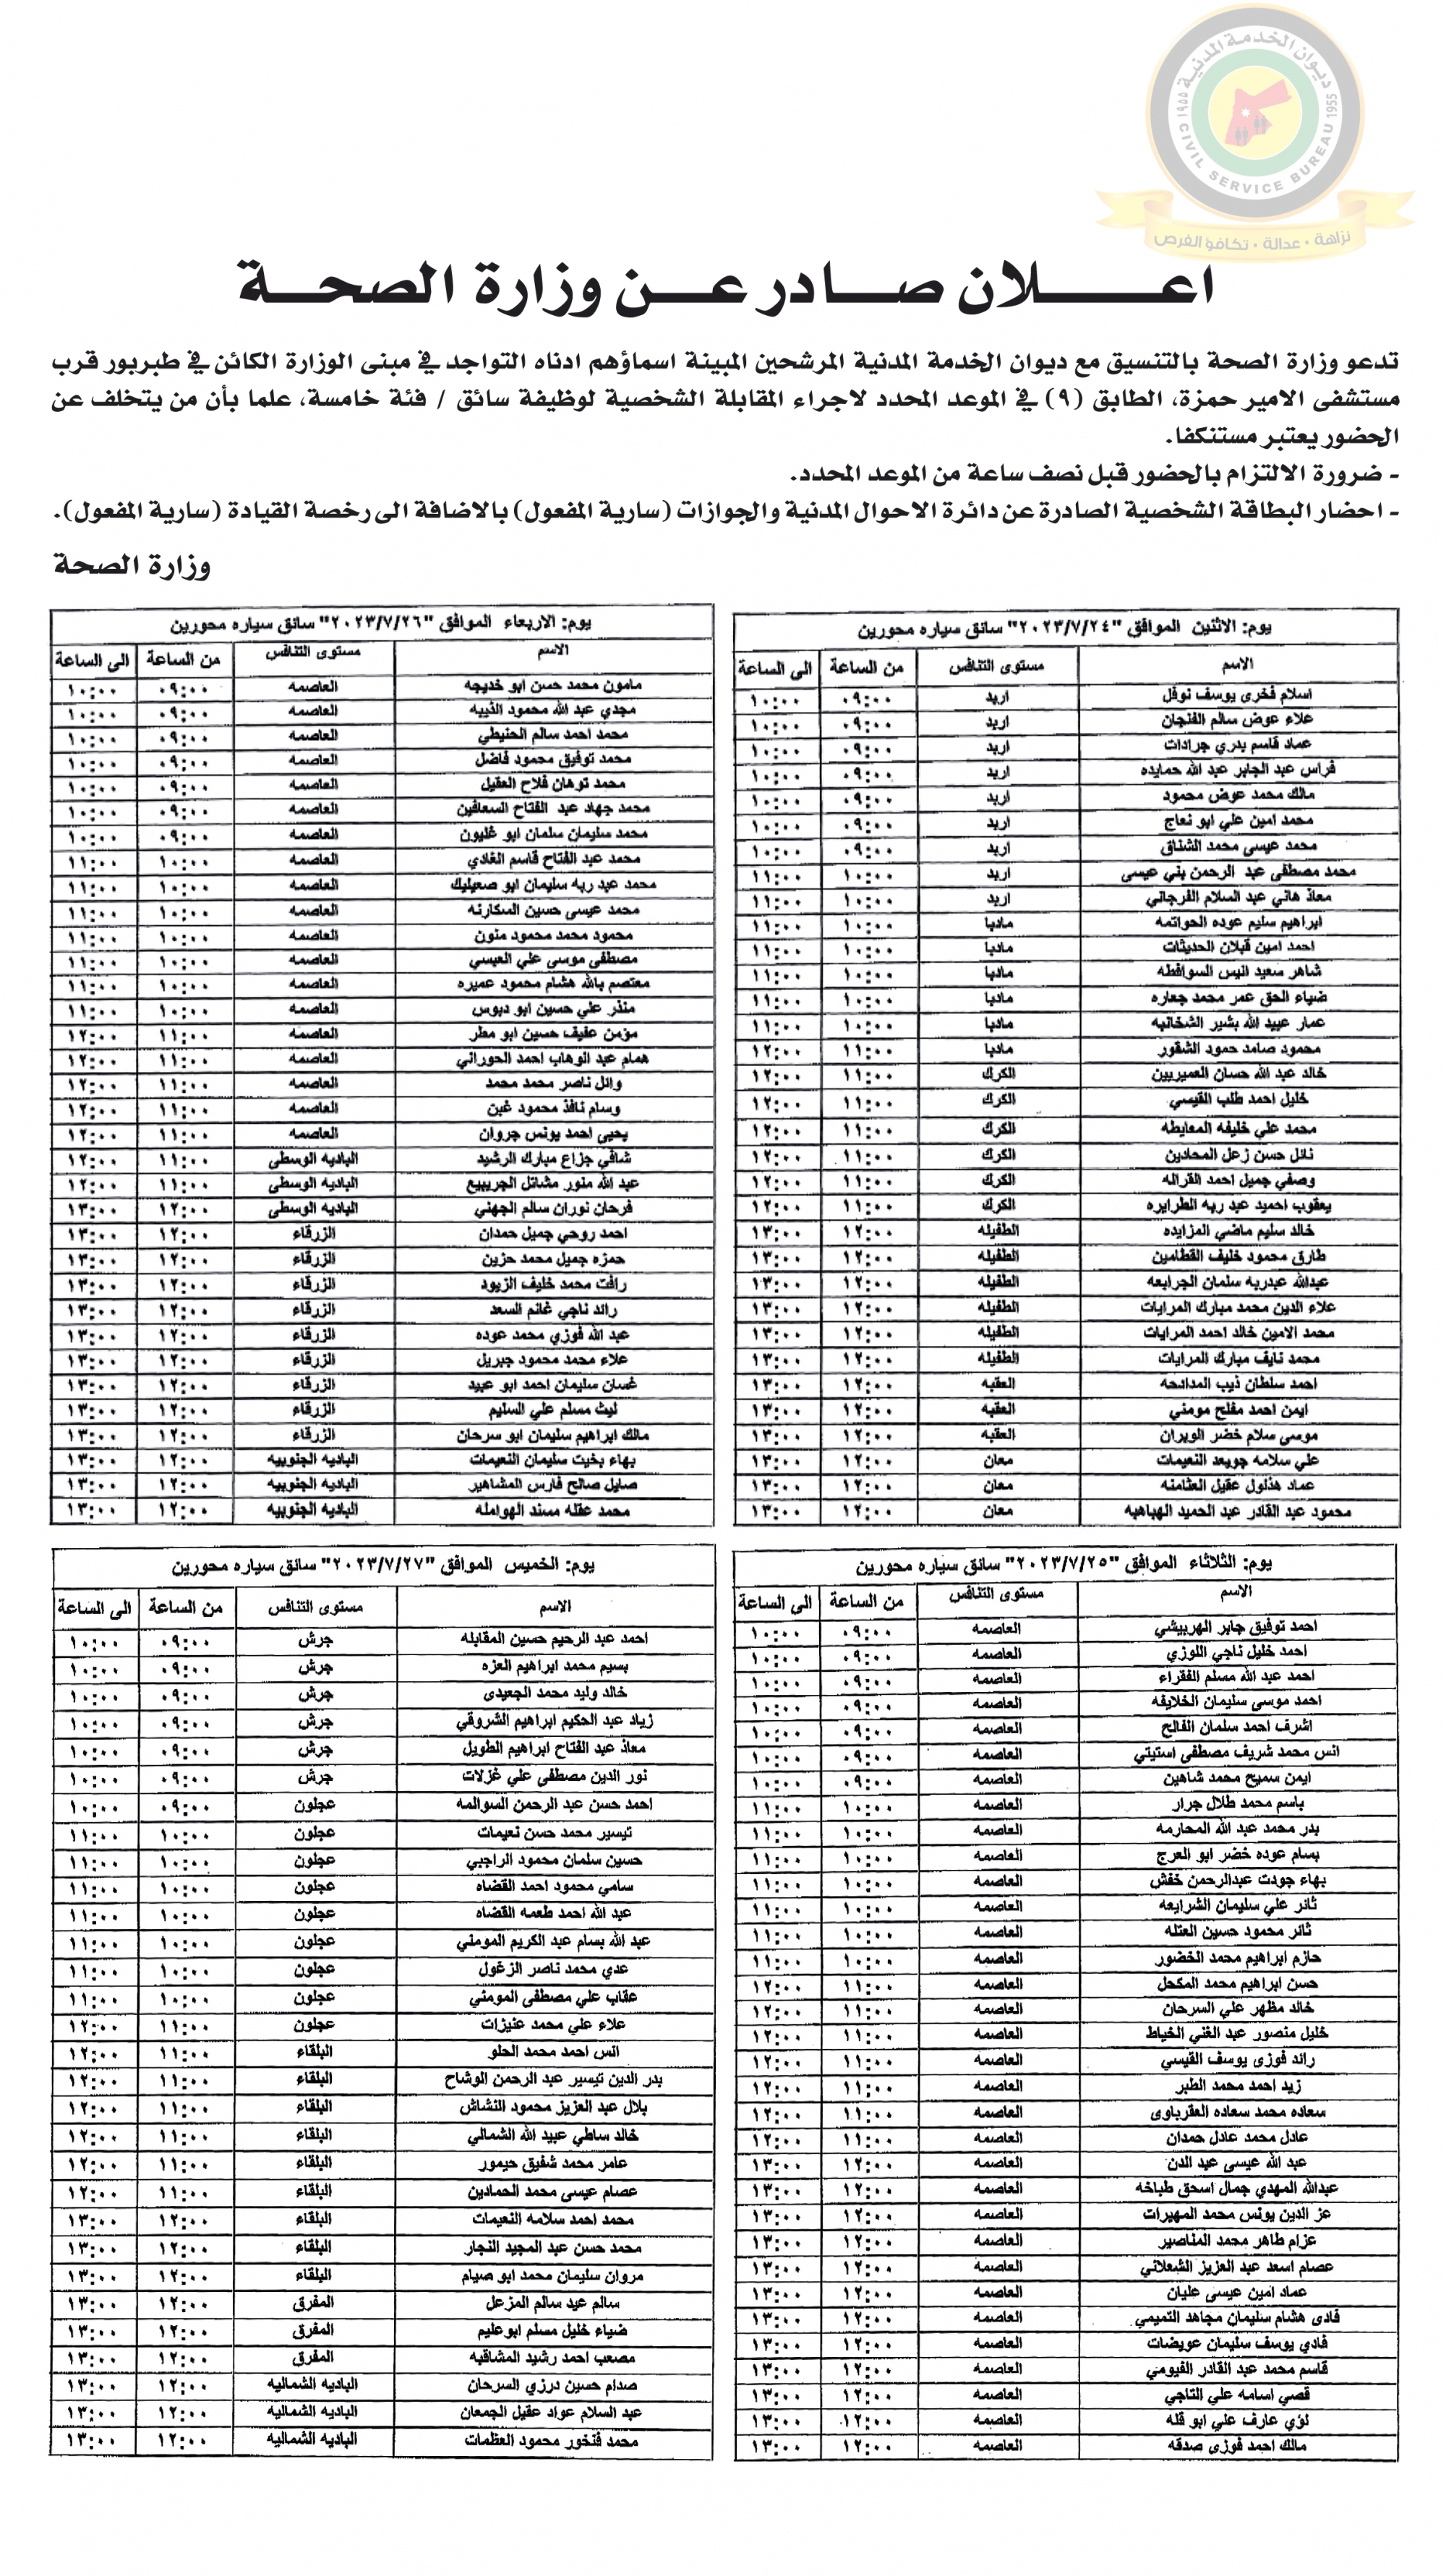 ديوان الخدمة المدنية
١٩٥٥ CIVIL SERVICE BUREAU 1955
نزاهة • عدالة • تكافؤ الفرص
اعــــلان صــادر عــن وزارة الصحــة
تدعو وزارة الصحة بالتنسيق مع ديوان الخدمة المدنية المرشحين المبينة اسماؤهم ادناه التواجد في مبنى الوزارة الكائن في طبربور قرب
مستشفى الامير حمزة، الطابق (٩) في الموعد المحدد لاجراء المقابلة الشخصية لوظيفة سائق / فئة خامسة، علما بأن من يتخلف عن
الحضور يعتبر مستنكفا.
- ضرورة الالتزام بالحضور قبل نصف ساعة من الموعد المحدد.
- احضار البطاقة الشخصية الصادرة عن دائرة الاحوال المدنية والجوازات (سارية المفعول) بالاضافة الى رخصة القيادة (سارية المفعول).
وزارة الصحة
يوم: الاثنين الموافق "٢٠٢٣/٧/٢٤" سائق سياره محورين
الاسم مستوى التنافس من الساعة الى الساعة
اسلام فخرى يوسف نوفل اربد ٠٩:٠٠ ١٠:٠٠
علاء عوض سالم الفنجان اربد ٠٩:٠٠ ١٠:٠٠
عماد قاسم بدري جرادات اربد ٠٩:٠٠ ١٠:٠٠
فراس عبد الجابر عبد الله حمايده اربد ٠٩:٠٠ ١٠:٠٠
مالك محمد عوض محمود اربد ٠٩:٠٠ ١٠:٠٠
محمد امين علي ابو نعاج اربد ٠٩:٠٠ ١٠:٠٠
محمد عيسى محمد الشناق اربد ٠٩:٠٠ ١٠:٠٠
محمد مصطفى عبد الرحمن بني عيسى اربد ١٠:٠٠ ١١:٠٠
معاذ هاني عبد السلام الفرجاني اربد ١٠:٠٠ ١١:٠٠
ابراهيم سليم عوده الحواتمه مادبا ١٠:٠٠ ١١:٠٠
احمد امين قبلان الحديثات مادبا ١٠:٠٠ ١١:٠٠
شاهر سعيد اليس السوافطه مادبا ١٠:٠٠ ١١:٠٠
ضياء الحق عمر محمد جعاره مادبا ١٠:٠٠ ١١:٠٠
عمار عبيد الله بشير الشخانبه مادبا ١٠:٠٠ ١١:٠٠
محمود صامد حمود الشقور مادبا ١١:٠٠ ١٢:٠٠
خالد عبد الله حسان العميريين الكرك ١١:٠٠ ١٢:٠٠
خليل احمد طلب القيسي الكرك ١١:٠٠ ١٢:٠٠
محمد علي خليفه المعايطه الكرك ١١:٠٠ ١٢:٠٠
نائل حسن زعل المحادين الكرك ١١:٠٠ ١٢:٠٠
وصفي جميل احمد القراله الكرك ١١:٠٠ ١٢:٠٠
يعقوب احميد عبد ربه الطرايره الكرك ١١:٠٠ ١٢:٠٠
خالد سليم ماضي المزايده الطفيله ١٢:٠٠ ١٣:٠٠
طارق محمود خليف القطامين الطفيله ١٢:٠٠ ١٣:٠٠
عبدالله عبدربه سلمان الجرابعه الطفيله ١٢:٠٠ ١٣:٠٠
علاء الدين محمد مبارك المرايات الطفيله ١٢:٠٠ ١٣:٠٠
محمد الامين خالد احمد المرايات الطفيله ١٢:٠٠ ١٣:٠٠
محمد نايف مبارك المرايات الطفيله ١٢:٠٠ ١٣:٠٠
احمد سلطان ذيب المدادحه العقبه ١٢:٠٠ ١٣:٠٠
ايمن احمد مفلح مومني العقبه ١٢:٠٠ ١٣:٠٠
موسى سلام خضر الويران العقبه ١٢:٠٠ ١٣:٠٠
علي سلامه جويعد النعيمات معان ١٢:٠٠ ١٣:٠٠
عماد هذلول عقيل العثامنه معان ١٢:٠٠ ١٣:٠٠
محمود عبد القادر عبد الحميد الهباهبه معان ١٢:٠٠ ١٣:٠٠
يوم: الاربعاء الموافق "٢٠٢٣/٧/٢٦" سائق سياره محورين
الاسم مستوى التنافس من الساعة الى الساعة
مامون محمد حسن ابو خديجه العاصمه ٠٩:٠٠ ١٠:٠٠
مجدي عبد الله محمود الذيبه العاصمه ٠٩:٠٠ ١٠:٠٠
محمد احمد سالم الحنيطي العاصمه ٠٩:٠٠ ١٠:٠٠
محمد توفيق محمود فاضل العاصمه ٠٩:٠٠ ١٠:٠٠
محمد توهان فلاح العقيل العاصمه ٠٩:٠٠ ١٠:٠٠
محمد جهاد عبد الفتاح السعافين العاصمه ٠٩:٠٠ ١٠:٠٠
محمد سليمان سلمان ابو غليون العاصمه ٠٩:٠٠ ١٠:٠٠
محمد عبد الفتاح قاسم الغادي العاصمه ١٠:٠٠ ١١:٠٠
محمد عبد ربه سليمان ابو صعيليك العاصمه ١٠:٠٠ ١١:٠٠
محمد عيسى حسين السكارنه العاصمه ١٠:٠٠ ١١:٠٠
محمود محمد محمود منون العاصمه ١٠:٠٠ ١١:٠٠
مصطفى موسى علي العيسي العاصمه ١٠:٠٠ ١١:٠٠
معتصم بالله هشام محمود عميره العاصمه ١٠:٠٠ ١١:٠٠
منذر علي حسين ابو دبوس العاصمه ١٠:٠٠ ١١:٠٠
مؤمن عفيف حسين ابو مطر العاصمه ١١:٠٠ ١٢:٠٠
همام عبد الوهاب احمد الحوراني العاصمه ١١:٠٠ ١٢:٠٠
وائل ناصر محمد محمد العاصمه ١١:٠٠ ١٢:٠٠
وسام نافذ محمود غبن العاصمه ١١:٠٠ ١٢:٠٠
يحيى احمد يونس جروان العاصمه ١١:٠٠ ١٢:٠٠
شافي جزاع مبارك الرشيد الباديه الوسطى ١١:٠٠ ١٢:٠٠
عبد الله منور مشاتل الجريبيع الباديه الوسطى ١١:٠٠ ١٢:٠٠
فرحان نوران سالم الجهني الباديه الوسطى ١٢:٠٠ ١٣:٠٠
احمد روحي جميل حمدان الزرقاء ١٢:٠٠ ١٣:٠٠
حمزه جميل محمد حزين الزرقاء ١٢:٠٠ ١٣:٠٠
رافت محمد خليف الزيود الزرقاء ١٢:٠٠ ١٣:٠٠
رائد ناجي غانم السعد الزرقاء ١٢:٠٠ ١٣:٠٠
عبد الله فوزي محمد عوده الزرقاء ١٢:٠٠ ١٣:٠٠
علاء محمد محمود جبريل الزرقاء ١٢:٠٠ ١٣:٠٠
غسان سليمان احمد ابو عبيد الزرقاء ١٢:٠٠ ١٣:٠٠
ليث مسلم علي السليم الزرقاء ١٢:٠٠ ١٣:٠٠
مالك ابراهيم سليمان ابو سرحان الزرقاء ١٢:٠٠ ١٣:٠٠
بهاء بخيت سليمان النعيمات الباديه الجنوبيه ١٢:٠٠ ١٣:٠٠
صايل صالح فارس المشاهير الباديه الجنوبيه ١٢:٠٠ ١٣:٠٠
محمد عقله مسند الهوامله الباديه الجنوبيه ١٢:٠٠ ١٣:٠٠
يوم: الثلاثاء الموافق "٢٠٢٣/٧/٢٥" سائق سياره محورين
الاسم مستوى التنافس من الساعة الى الساعة
احمد توفيق جابر الهربيشي العاصمه ٠٩:٠٠ ١٠:٠٠
احمد خليل ناجي اللوزي العاصمه ٠٩:٠٠ ١٠:٠٠
احمد عبد الله مسلم الفقراء العاصمه ٠٩:٠٠ ١٠:٠٠
احمد موسى سليمان الخلايفه العاصمه ٠٩:٠٠ ١٠:٠٠
اشرف احمد سلمان الفالح العاصمه ٠٩:٠٠ ١٠:٠٠
انس محمد شريف مصطفى استيتي العاصمه ٠٩:٠٠ ١٠:٠٠
ايمن سميح محمد شاهين العاصمه ٠٩:٠٠ ١٠:٠٠
باسم محمد طلال جرار العاصمه ١٠:٠٠ ١١:٠٠
بدر محمد عبد الله المحارمه العاصمه ١٠:٠٠ ١١:٠٠
بسام عوده خضر ابو العرج العاصمه ١٠:٠٠ ١١:٠٠
بهاء جودت عبدالرحمن خفش العاصمه ١٠:٠٠ ١١:٠٠
ثائر علي سليمان الشرايعه العاصمه ١٠:٠٠ ١١:٠٠
ثائر محمود حسين العتله العاصمه ١٠:٠٠ ١١:٠٠
حازم ابراهيم محمد الخضور العاصمه ١٠:٠٠ ١١:٠٠
حسن ابراهيم محمد المكحل العاصمه ١١:٠٠ ١٢:٠٠
خالد مظهر علي السرحان العاصمه ١١:٠٠ ١٢:٠٠
خليل منصور عبد الغني الخياط العاصمه ١١:٠٠ ١٢:٠٠
رائد فوزى يوسف القيسي العاصمه ١١:٠٠ ١٢:٠٠
زيد احمد محمد الطبر العاصمه ١١:٠٠ ١٢:٠٠
سعاده محمد سعاده العقرباوى العاصمه ١١:٠٠ ١٢:٠٠
عادل محمد عادل حمدان العاصمه ١١:٠٠ ١٢:٠٠
عبد الله عيسى عيد الدن العاصمه ١٢:٠٠ ١٣:٠٠
عبدالله المهدي جمال اسحق طباخه العاصمه ١٢:٠٠ ١٣:٠٠
عز الدين يونس محمد المهيرات العاصمه ١٢:٠٠ ١٣:٠٠
عزام طاهر محمد المناصير العاصمه ١٢:٠٠ ١٣:٠٠
عصام اسعد عبد العزيز الشعلاني العاصمه ١٢:٠٠ ١٣:٠٠
عماد امين عيسى عليان العاصمه ١٢:٠٠ ١٣:٠٠
فادى هشام سليمان مجاهد التميمي العاصمه ١٢:٠٠ ١٣:٠٠
فادي يوسف سليمان عويضات العاصمه ١٢:٠٠ ١٣:٠٠
قاسم محمد عبد القادر الفيومي العاصمه ١٢:٠٠ ١٣:٠٠
قصي اسامه علي التاجي العاصمه ١٢:٠٠ ١٣:٠٠
لؤي عارف علي ابو قله العاصمه ١٢:٠٠ ١٣:٠٠
مالك احمد فوزى صدقه العاصمه ١٢:٠٠ ١٣:٠٠
يوم: الخميس الموافق "٢٠٢٣/٧/٢٧" سائق سياره محورين
الاسم مستوى التنافس من الساعة الى الساعة
احمد عبد الرحيم حسين المقابله جرش ٠٩:٠٠ ١٠:٠٠
بسيم محمد ابراهيم العزه جرش ٠٩:٠٠ ١٠:٠٠
خالد وليد محمد الجعيدى جرش ٠٩:٠٠ ١٠:٠٠
زياد عبد الحكيم ابراهيم الشروقي جرش ٠٩:٠٠ ١٠:٠٠
معاذ عبد الفتاح ابراهيم الطويل جرش ٠٩:٠٠ ١٠:٠٠
نور الدين مصطفى علي غزلات جرش ٠٩:٠٠ ١٠:٠٠
احمد حسن عبد الرحمن السوالمه عجلون ٠٩:٠٠ ١٠:٠٠
تيسير محمد حسن نعيمات عجلون ١٠:٠٠ ١١:٠٠
حسين سلمان محمود الراجبي عجلون ١٠:٠٠ ١١:٠٠
سامي محمود احمد القضاه عجلون ١٠:٠٠ ١١:٠٠
عبد الله احمد طعمه القضاه عجلون ١٠:٠٠ ١١:٠٠
عبد الله بسام عبد الكريم المومني عجلون ١٠:٠٠ ١١:٠٠
عدي محمد ناصر الزغول عجلون ١٠:٠٠ ١١:٠٠
عقاب علي مصطفى المومني عجلون ١٠:٠٠ ١١:٠٠
علاء علي محمد عنيزات عجلون ١١:٠٠ ١٢:٠٠
انس احمد محمد الحلو البلقاء ١١:٠٠ ١٢:٠٠
بدر الدين تيسير عبد الرحمن الوشاح البلقاء ١١:٠٠ ١٢:٠٠
بلال عبد العزيز محمود النشاش البلقاء ١١:٠٠ ١٢:٠٠
خالد ساطي عبيد الله الشمالي البلقاء ١١:٠٠ ١٢:٠٠
عامر محمد شفيق حيمور البلقاء ١١:٠٠ ١٢:٠٠
عصام عيسى محمد الحمادين البلقاء ١١:٠٠ ١٢:٠٠
محمد احمد سلامه النعيمات البلقاء ١٢:٠٠ ١٣:٠٠
محمد حسن عبد المجيد النجار البلقاء ١٢:٠٠ ١٣:٠٠
مروان سليمان محمد ابو صيام البلقاء ١٢:٠٠ ١٣:٠٠
سالم عيد سالم المزعل المفرق ١٢:٠٠ ١٣:٠٠
ضياء خليل مسلم ابوعليم المفرق ١٢:٠٠ ١٣:٠٠
مصعب احمد رشيد المشاقبه المفرق ١٢:٠٠ ١٣:٠٠
صدام حسين درزي السرحان الباديه الشماليه ١٢:٠٠ ١٣:٠٠
عبد السلام عواد عقيل الجمعان الباديه الشماليه ١٢:٠٠ ١٣:٠٠
محمد فنخور محمود العظمات الباديه الشماليه ١٢:٠٠ ١٣:٠٠